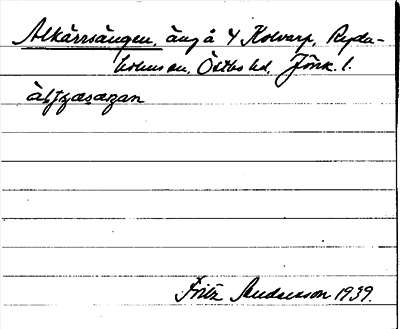 Alkärrsängen, äng å 4 Kolvarp, Ryda-
holms sn, Östbo hd, Jönk. l.
Fritz Andersson 1939.